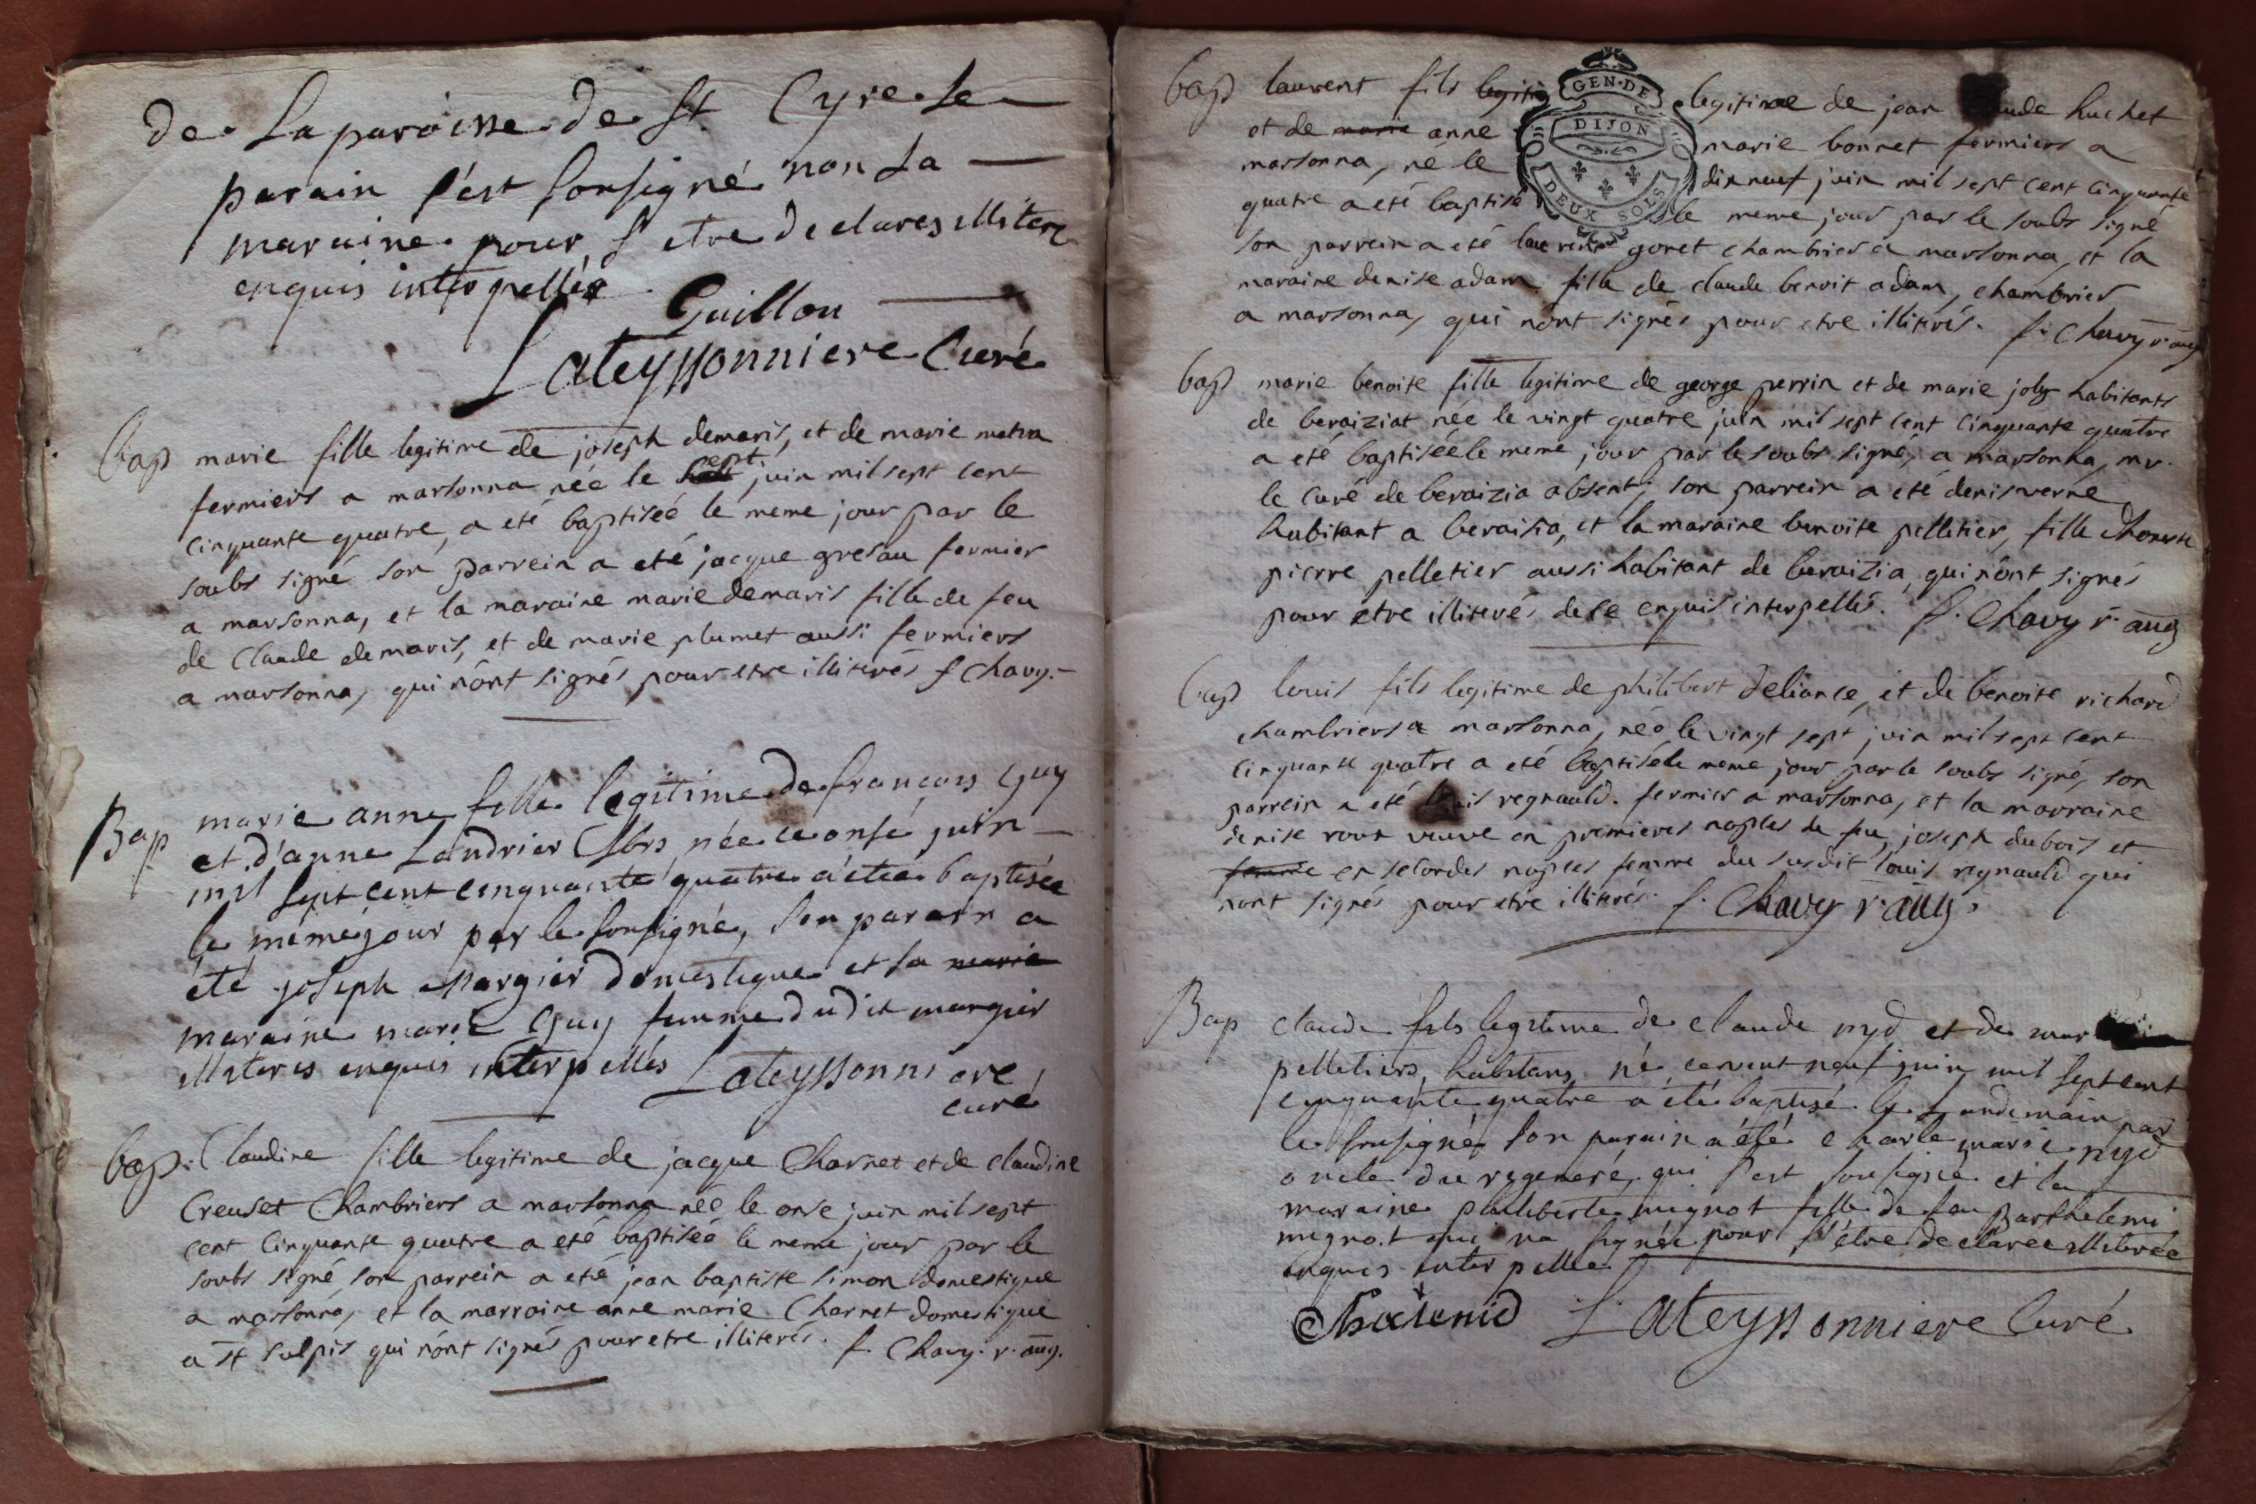 de la paroisse de St Cyre le
parain s'est sousigné non la
maraine pour s'etre declares illiteré
enquis interpellés
Guillon
Lateyssonniere Curé
bap marie fille legitime de joseph demaris, et de marie
fermiers a marsonna née le sept juin mil sept cent
cinquante quatre, a eté baptiséé le meme jour par le
soubs signé son parrein a eté jacque gresau fermier
a marsonna, et la maraine marie demaris fille de feu
de Claude demaris, et de marie plumet aussi fermiers
a marsonna, qui n'ont signés pour etre illiterés f Chavy.
Bap marie anne fille legitime de françois Guy
et d'anne Landrier née ce onsé juin
mil sept cent cinquante quatre a été baptisée
le même jour par le sousigné, son parain a
été joseph Margier domestique et sa marie
maraine marie Guy femme dudit margier
illiteres enquis interpellés Lateyssonniere
curé
bap: Claudine fille legitime de jacque Charnet et de claudine
Creuset Chambriers a marsonna née le onse juin mil sept
cent Cinquante quatre a eté baptiséé le meme jour par le
soubs signé, son parrein a eté jean baptiste simon domestique
a marsonna, et la marraine anne marie Charnet domestique
a st sulpis qui n'ont signés pour etre illiterés. f. Chavy. r. aug.
bap laurent fils legiti legitime de jean claude huchet
et de marie anne marie bonnet fermiers a
marsonna, né le dixneuf juin mil sept cent cinquante
quatre a eté baptisé le meme jour par le soubs signé
son parrein a eté laurent goret chambrier a marsonna, et la
maraine denise adam fille de claude benoit adam, chambrier
a marsonna, qui n'ont signés pour etre illiterés. f. Chavy r. aug
GEN. DE
DIJON
DEUX SOLS
bap marie benoite fille legitime de george perrin et de marie joly habitants
de beraiziat née le vingt quatre juin mil sept cent cinquante quatre
a eté baptiséé le meme jour par le soubs signé, a marsonna, mr.
le curé de beraizia absent; son parrein a eté denis verne
habitant a beraisia, et la maraine benoite pelletier, fille d'honeste
pierre pelletier aussi habitant de beraizia, qui n'ont signés
pour etre illiterés de ce enquis interpellés. f. Chavy r. aug
bap louis fils legitime de philibert deliance, et de benoite richard
chambriers a marsonna, néé le vingt sept juin mil sept cent
cinquante quatre a eté baptisé le meme jour par le soubs signé, son
parrein a eté louis regnauld. fermier a marsonna, et la marraine
denise roux veuve en premieres nopces de feu, joseph dubois et
femme en secondes nopces femme du susdit louis regnauld qui
n'ont signés pour etre illiterés. f. Chavy r. aug.
Bap claude fils legitime de claude nyd et de
pelletiers, habitans né ce vint neuf juin mil sept cent
cinquante quatre a été baptisé le landemain par
le sousigné son parain a été charle marie nyd
oncle du regeneré, qui s'est sousigné et la
maraine philiberte mignot fille de feu Barthelemi
mignot qui na signée pour s'être declaree illiterée
enquis interpellée
Lateyssonniere Curé